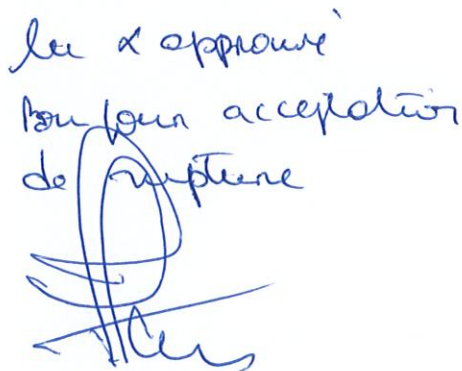 lu & approuvé
Bon pour acceptation
de rupture